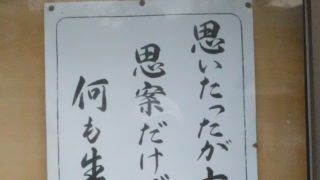 思いたったが
思案だけ
何も生